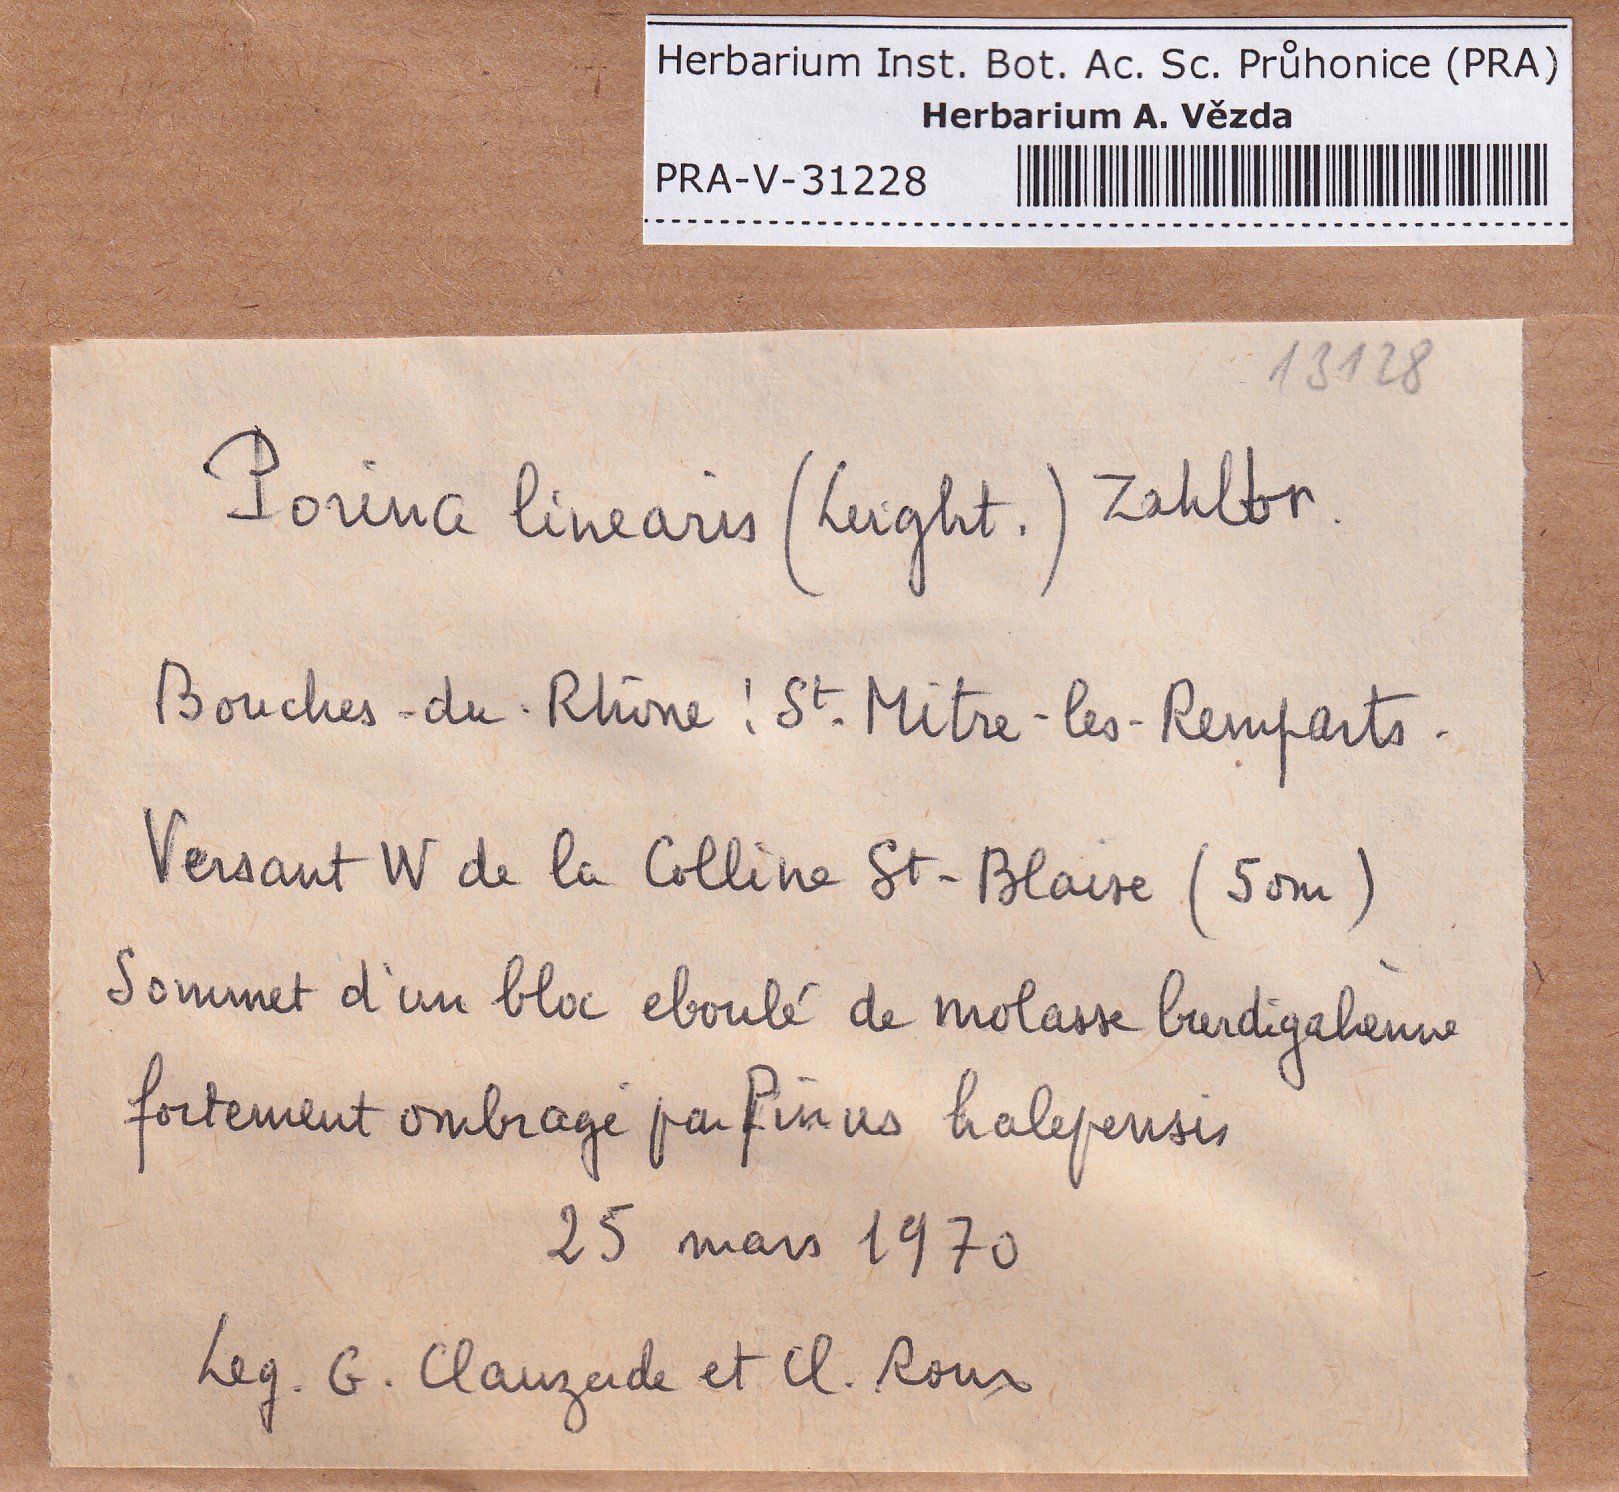 Herbarium Inst. Bot. Ac. Sc. Průhonice (PRA)
Herbarium A. Vězda
PRA-V-31228
13128
Porina linearis (Leight.) Zahlbr.
Bouches-du-Rhône : St-Mitre-les-Remparts.
Versant W de la Colline St-Blaise (50m)
Sommet d'un bloc eboulé de molasse burdigalienne
fortement ombragé par Pinus halepensis
25 mars 1970
Leg. G. Clauzade et Cl. Roux